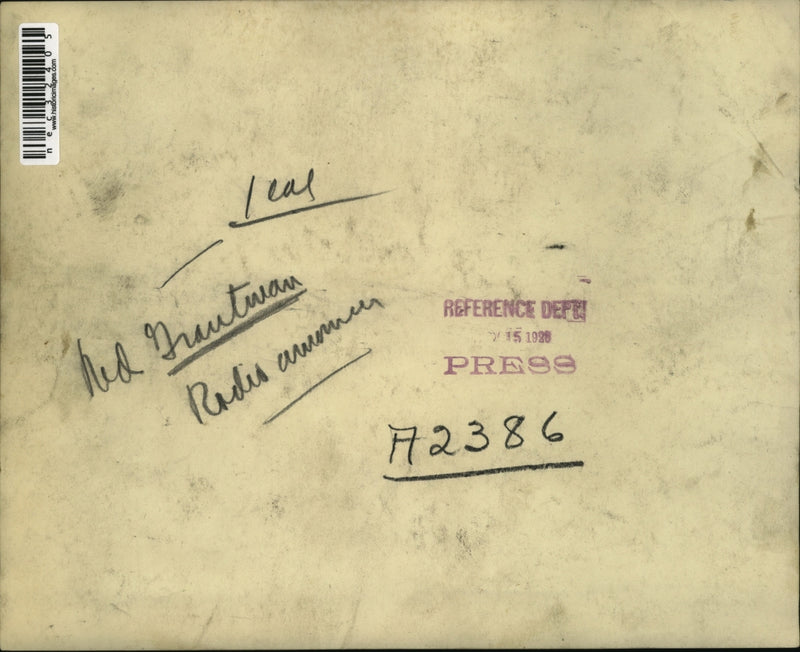 nec32405
www.historicimages.com
1 col
Ned Trautman
Radio announcer
REFERENCE DEPT
15 1928
PRESS
A2386